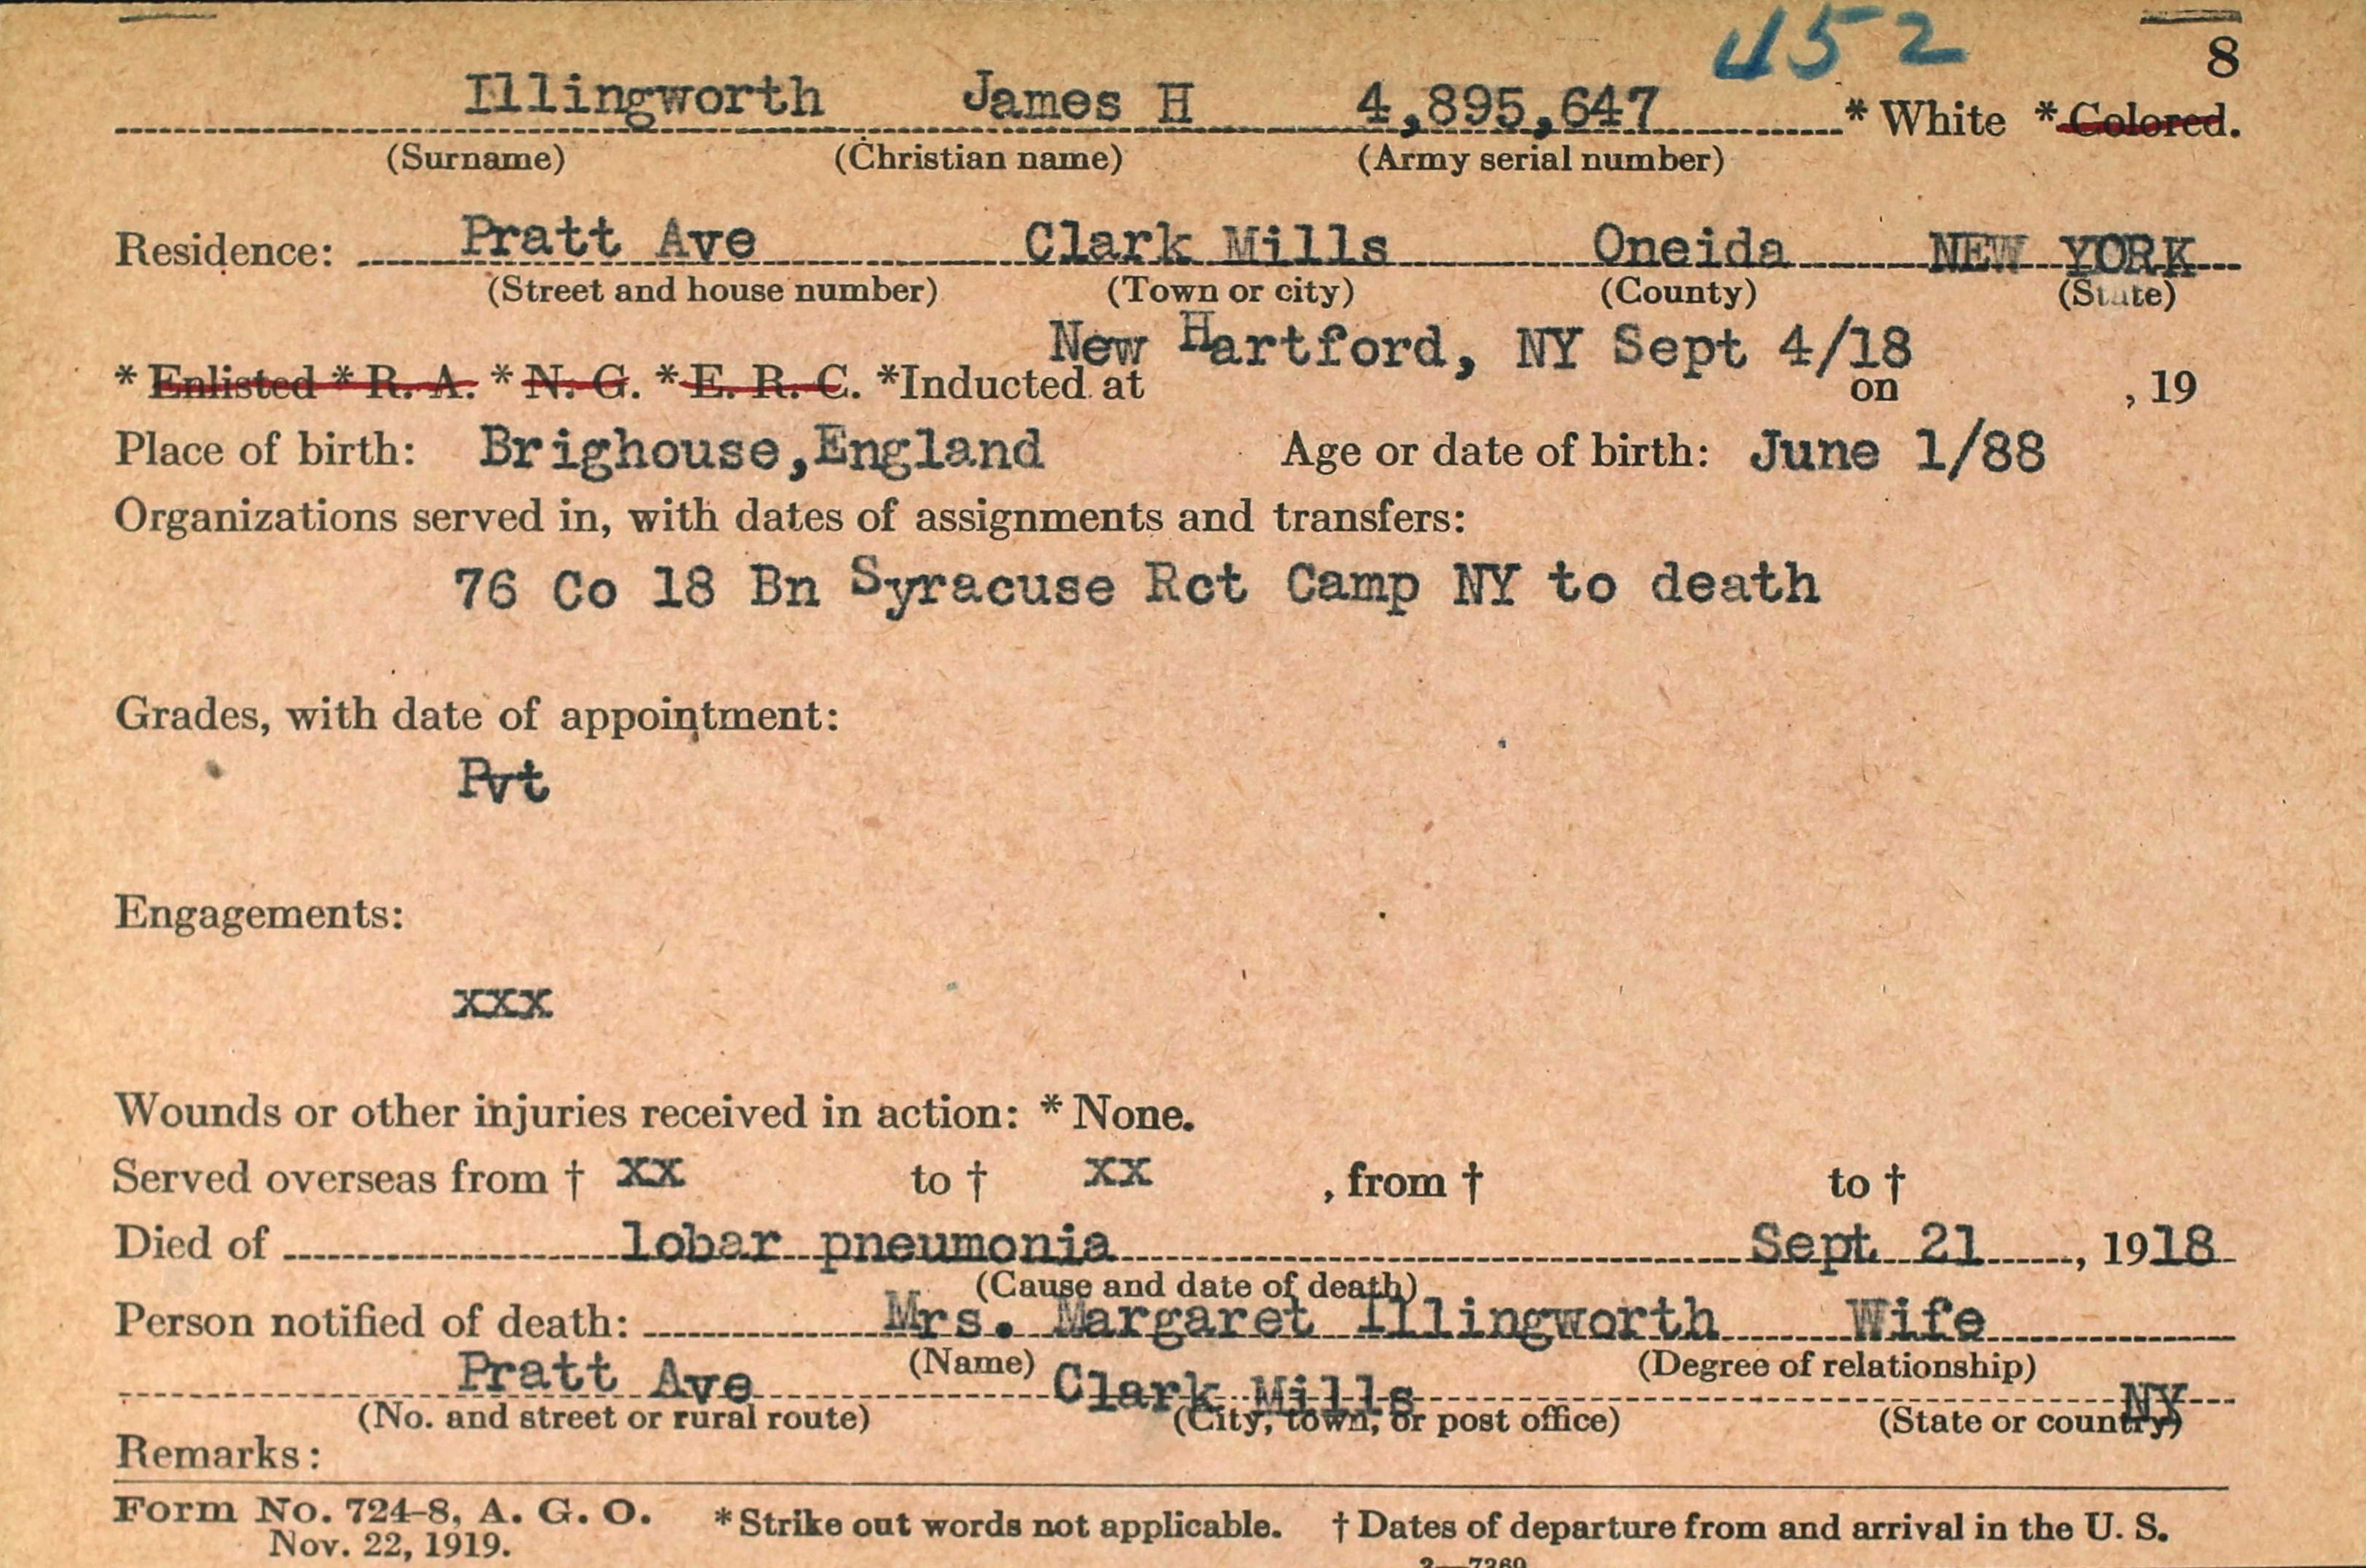 452
8
Illingworth James H 4,895,647 * White * Colored.
(Surname) (Christian name) (Army serial number)
Residence: Pratt Ave Clark Mills Oneida NEW YORK
(Street and house number) (Town or city) (County) (State)
New Hartford, NY Sept 4/18
* Enlisted * R. A. * N. G. * E. R. C. *Inducted at on , 19
Place of birth: Brighouse,England Age or date of birth: June 1/88
Organizations served in, with dates of assignments and transfers:
76 Co 18 Bn Syracuse Rct Camp NY to death
Grades, with date of appointment:
Pvt
Engagements:
xxx
Wounds or other injuries received in action: * None.
Served overseas from † xx to † xx , from † to †
Died of lobar pneumonia Sept 21, 1918
(Cause and date of death)
Person notified of death: Mrs. Margaret Illingworth Wife
(Name) (Degree of relationship)
Pratt Ave Clark Mills NY
(No. and street or rural route) (City, town, or post office) (State or country)
Remarks:
Form No. 724-8, A. G. O. * Strike out words not applicable. † Dates of departure from and arrival in the U. S.
Nov. 22, 1919.
3—7269